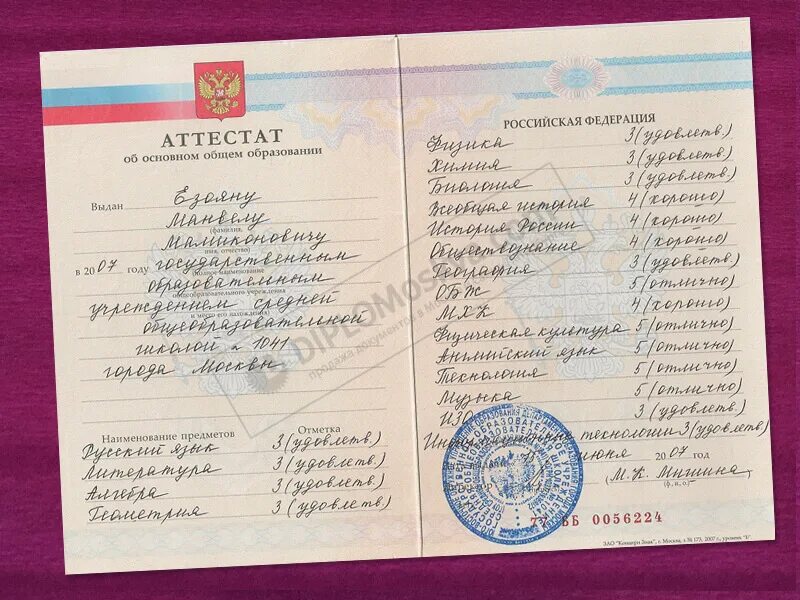 АТТЕСТАТ
об основном общем образовании
Выдан Езояну
Манвелу
(фамилия,
Маликоновичу
имя, отчество)
в 2007 году государственным
(полное наименование
образовательным
общеобразовательного учреждения
учреждением средней
и место его нахождения)
общеобразовательной
школой № 1041
города Москвы
Наименование предметов Отметка
Русский язык 3 (удовлетв.)
Литература 3 (удовлетв.)
Алгебра 3 (удовлетв.)
Геометрия 3 (удовлетв.)
РОССИЙСКАЯ ФЕДЕРАЦИЯ
Физика 3 (удовлетв.)
Химия 3 (удовлетв.)
Биология 3 (удовлетв.)
Всеобщая история 4 (хорошо)
История России 4 (хорошо)
Обществознание 4 (хорошо)
География 3 (удовлетв.)
ОБЖ 5 (отлично)
МХК 4 (хорошо)
Физическая культура 5 (отлично)
Английский язык 5 (отлично)
Технология 5 (отлично)
Музыка 5 (отлично)
ИЗО 3 (удовлетв.)
технологии 3 (удовлетв)
июня 2007 год
М.К. Мишина
(ф., и., о.)
77 ББ 0056224